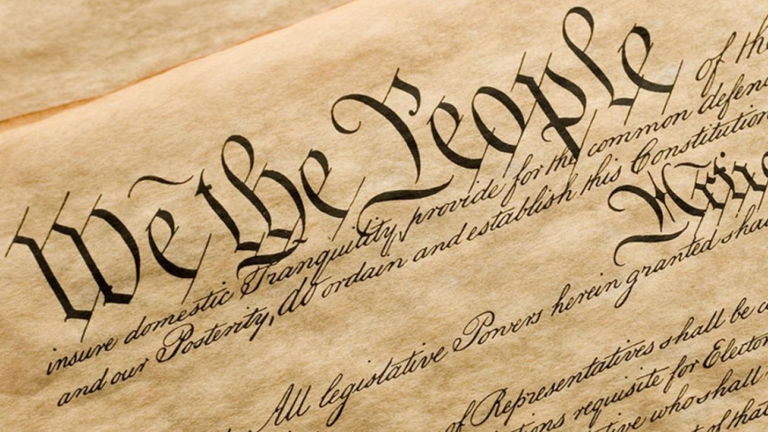 We the People of the
insure domestic Tranquility, provide for the common defenc
and our Posterity, do ordain and establish this Constitution
All legislative Powers herein granted shal
of Representatives shall be c
tions requisite for Elector
who shall
t of that